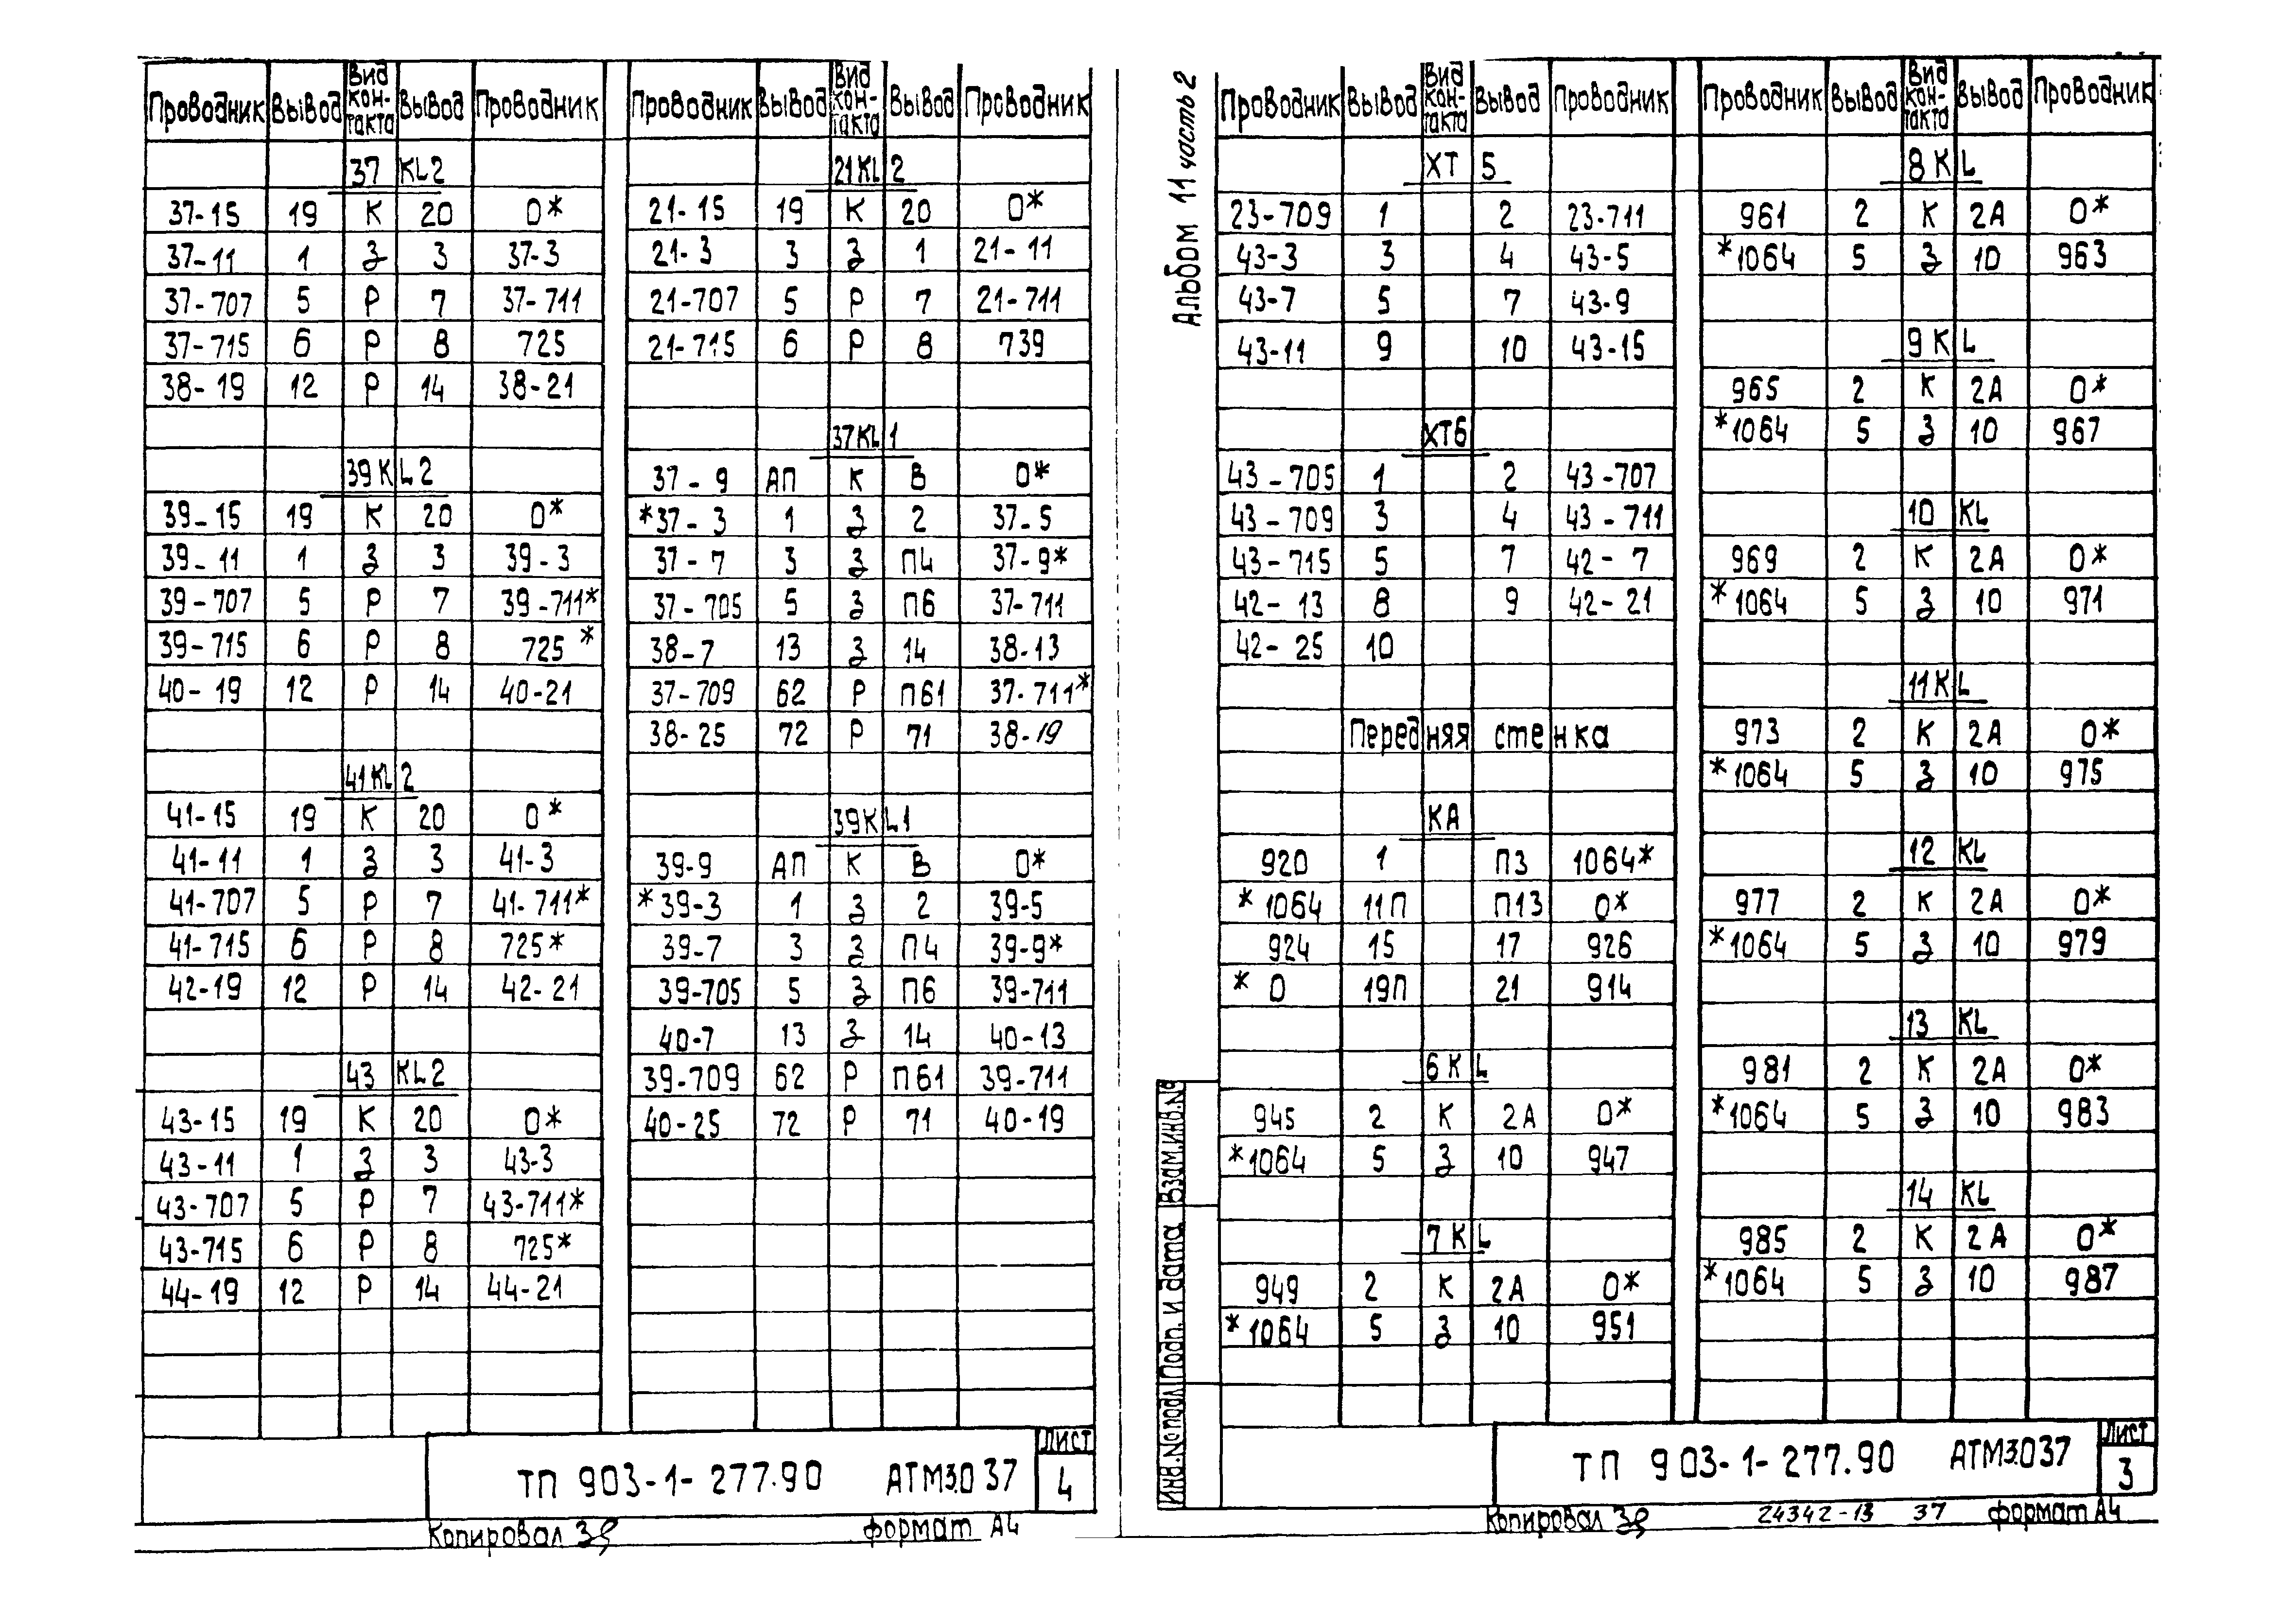 Проводник Вывод Вид кон-такта Вывод Проводник
37 KL2
37-15 19 К 20 0*
37-11 1 З 3 37-3
37-707 5 Р 7 37-711
37-715 6 Р 8 725
38-19 12 Р 14 38-21
39KL2
39-15 19 К 20 0*
39-11 1 З 3 39-3
39-707 5 Р 7 39-711*
39-715 6 Р 8 725*
40-19 12 Р 14 40-21
41KL2
41-15 19 К 20 0*
41-11 1 З 3 41-3
41-707 5 Р 7 41-711*
41-715 6 Р 8 725*
42-19 12 Р 14 42-21
43 KL2
43-15 19 К 20 0*
43-11 1 З 3 43-3
43-707 5 Р 7 43-711*
43-715 6 Р 8 725*
44-19 12 Р 14 44-21
Проводник Вывод Вид кон-такта Вывод Проводник
21KL2
21-15 19 К 20 0*
21-3 3 З 1 21-11
21-707 5 Р 7 21-711
21-715 6 Р 8 739
37KL1
37-9 АП К В 0*
*37-3 1 З 2 37-5
37-7 3 З П4 37-9*
37-705 5 З П6 37-711
38-7 13 З 14 38-13
37-709 62 Р П61 37-711*
38-25 72 Р 71 38-19
39KL1
39-9 АП К В 0*
*39-3 1 З 2 39-5
39-7 3 З П4 39-9*
39-705 5 З П6 39-711
40-7 13 З 14 40-13
39-709 62 Р П61 39-711
40-25 72 Р 71 40-19
ТП 903-1-277.90 АТМ3.037
Лист
4
Копировал
формат А4
Альбом 11 часть 2
Проводник Вывод Вид кон-такта Вывод Проводник
ХТ 5
23-709 1 2 23-711
43-3 3 4 43-5
43-7 5 7 43-9
43-11 9 10 43-15
ХТ6
43-705 1 2 43-707
43-709 3 4 43-711
43-715 5 7 42-7
42-13 8 9 42-21
42-25 10
Передняя стенка
КА
920 1 П3 1064*
*1064 11П П13 0*
924 15 17 926
*0 19П 21 914
6KL
945 2 К 2А 0*
*1064 5 З 10 947
7KL
949 2 К 2А 0*
*1064 5 З 10 951
Проводник Вывод Вид кон-такта Вывод Проводник
8KL
961 2 К 2А 0*
*1064 5 З 10 963
9KL
965 2 К 2А 0*
*1064 5 З 10 967
10 KL
969 2 К 2А 0*
*1064 5 З 10 971
11KL
973 2 К 2А 0*
*1064 5 З 10 975
12 KL
977 2 К 2А 0*
*1064 5 З 10 979
13 KL
981 2 К 2А 0*
*1064 5 З 10 983
14 KL
985 2 К 2А 0*
*1064 5 З 10 987
Инв.№подл Подп. и дата Взам.инв.№
ТП 903-1-277.90 АТМ3.037
Лист
3
Копировал
24342-13 37
формат А4